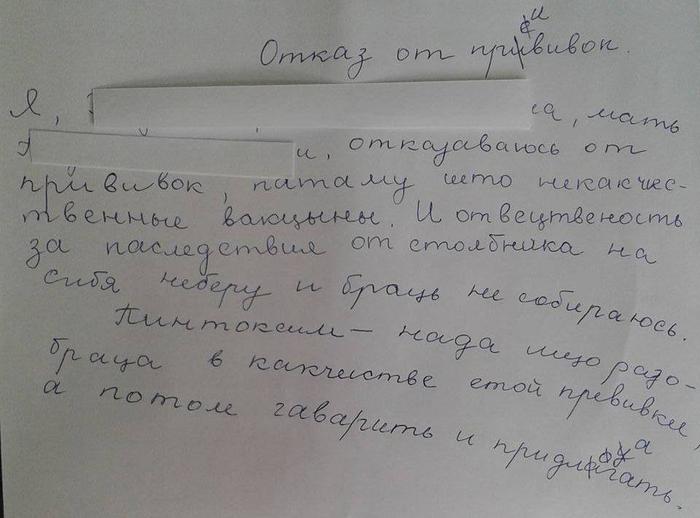 Отказ от прививок.
Я, на, мать
и, отказаваюсь от
прививок, патаму што некакчес-
твенные вакцыны. И отвецтвеность
за паследствия от столбника на
сибя неберу и браць не собираюсь.
Пинтоксим – нада ищо разо-
браца в какчестве етой превивки,
а потом гаварить и придлагать.